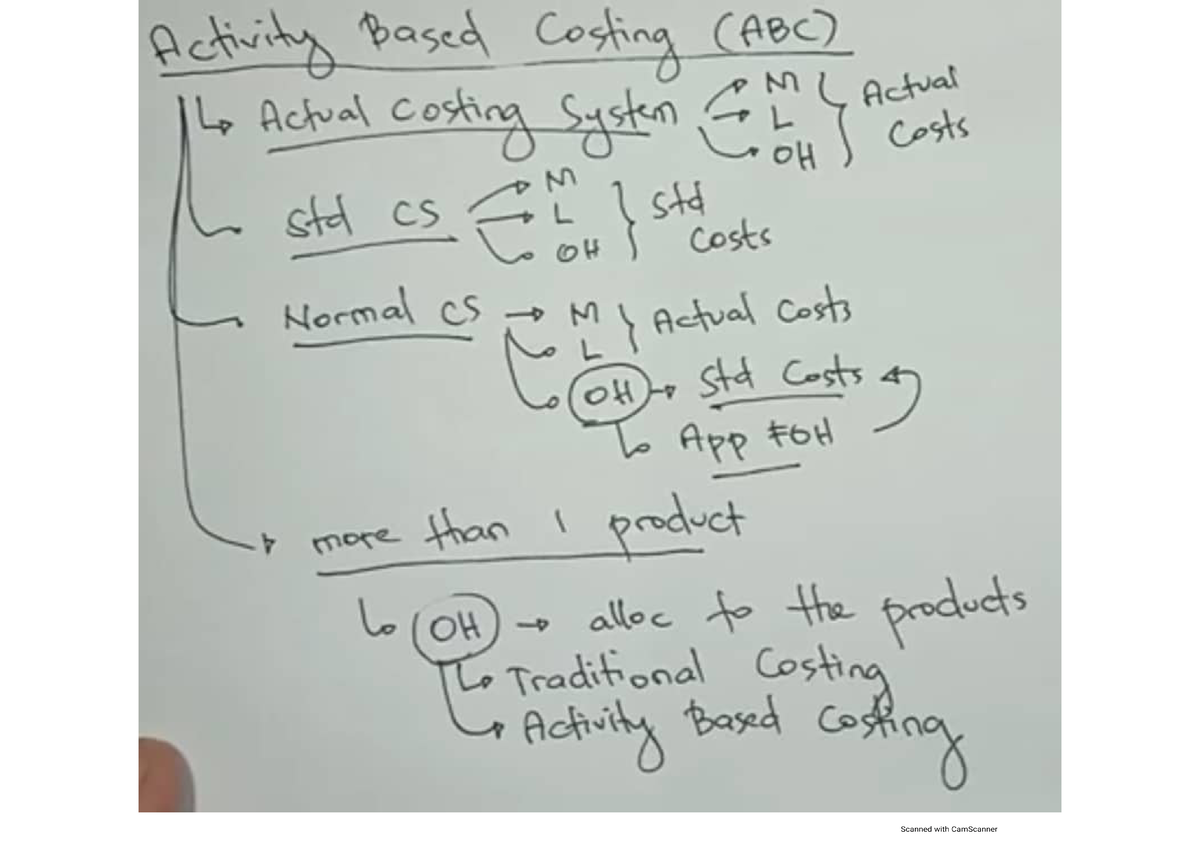 Activity Based Costing (ABC)
Actual Costing System M L OH Actual Costs
Std CS M L OH Std Costs
Normal CS M L Actual Costs
OH Std Costs
App FOH
more than 1 product
OH alloc to the products
Traditional Costing
Activity Based Costing
Scanned with CamScanner